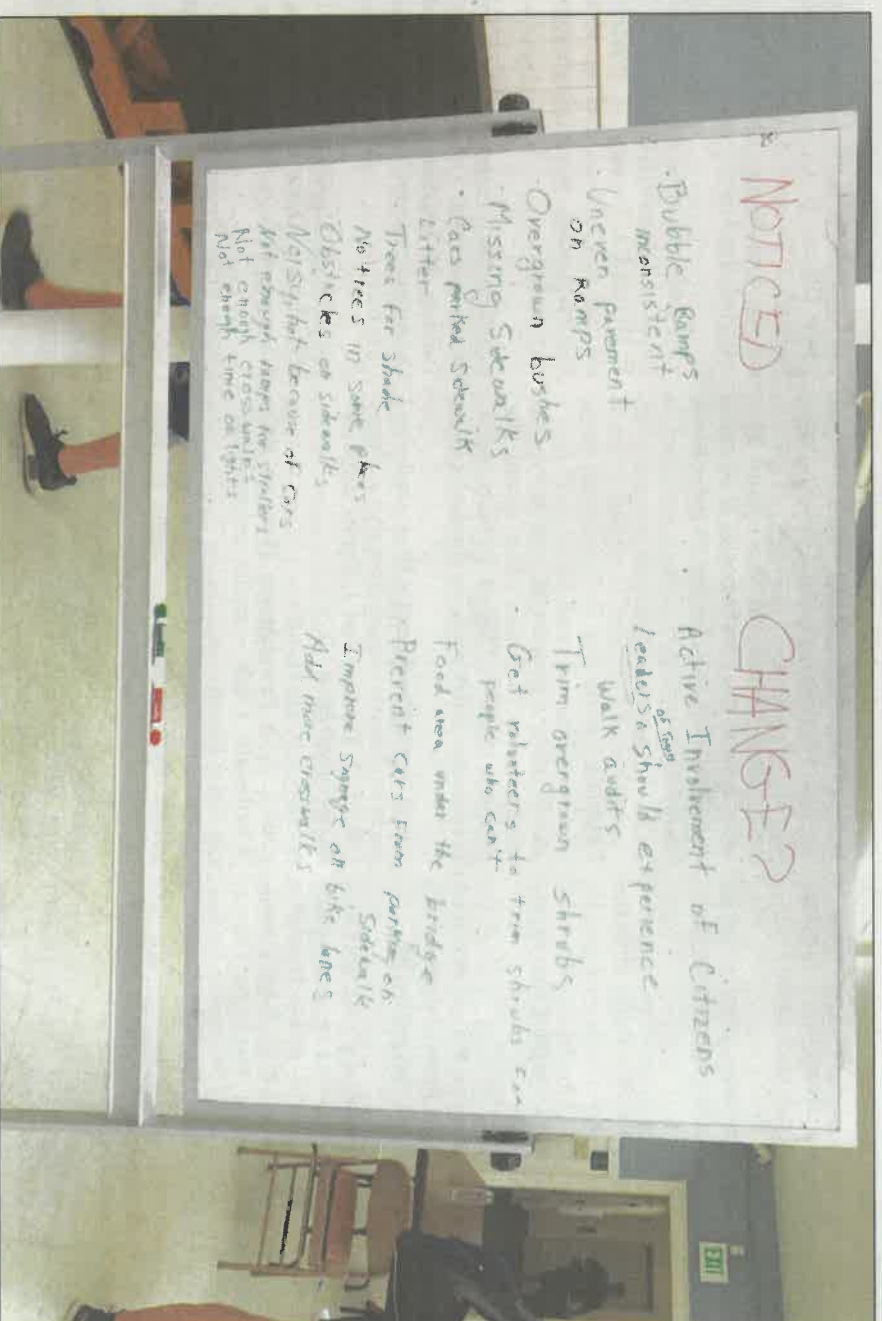 NOTICED
· Bubble Ramps
inconsistent
· Uneven pavement
on Ramps
· Overgrown bushes
· Missing Sidewalks
· Cars parked Sidewalk
Litter
· Trees for shade
No trees in some places
· Obsticles on sidewalks
Noisy, hot because of cars
Not enough ramps for strollers
Not enough crosswalks
Not enough time on lights
CHANGE?
· Active Involvement of Citizens
of Town
Leaders ^ should experience
Walk audits
· Trim overgrown shrubs
· Get volunteers to trim shrubs for
people who can't
Food area under the bridge
· Prevent Cars from parking on
Sidewalk
Improve Signage on bike lanes
Add more crosswalks
EXIT